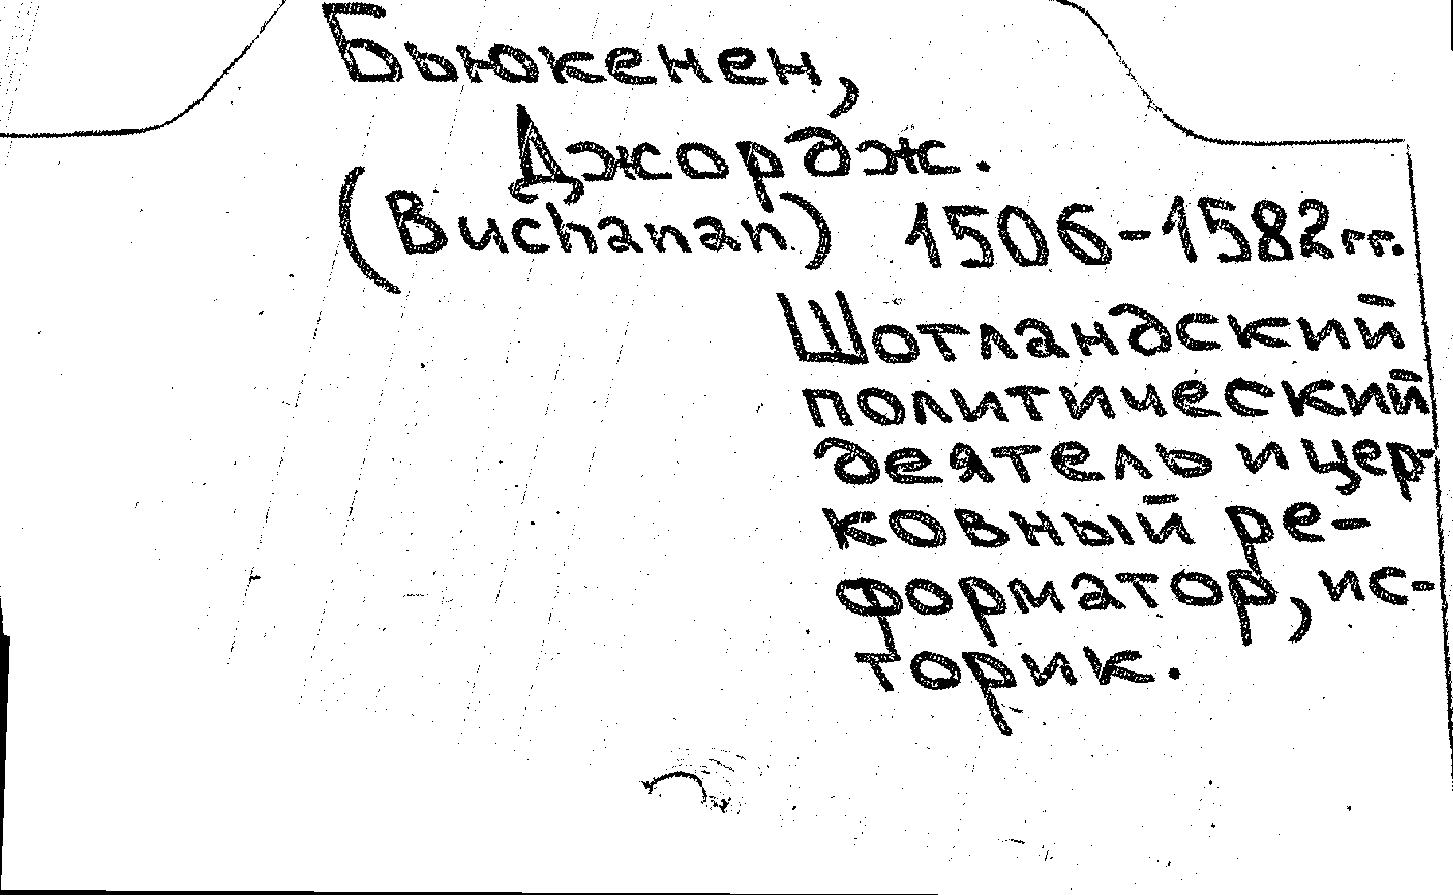 Бьюкенен,
Джордж.
(Buchanan) 1506-1582гг.
Шотландский
политический
деятель и цер-
ковный ре-
форматор, ис-
торик.